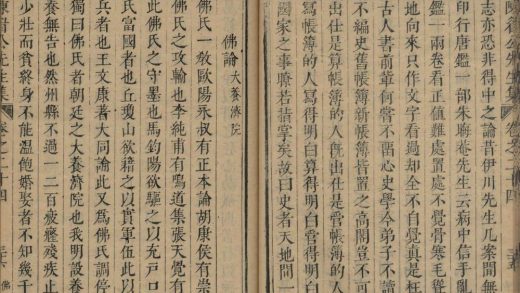 志亦恐非得中之論昔伊川先生几案間無
印行唐鑑一部朱晦菴先生云病中信手亂
鑑一兩卷看正值難處置處不覺骨寒毛聳
地向來只作文字看過却全不自覺真是枉
古人書前輩何嘗不留心史學今弟子不讀
不編史舊帳簿新帳簿皆置之高閣豈不可
出仕是算帳簿的人旣出仕是管帳簿的人
寫帳簿的人寫得明白算得明白管得明白
國家之事瞭若指掌矣故曰史者天地間一
佛論 大養濟院
佛氏一教歐陽永叔有正本論胡康侯有崇
佛氏之攻輸也李純甫有鳴道集張天覺有
此佛氏之守墨也馬鈞陽欲驅之以充戶口
氏富國者也丘瓊山欲籍之以實軍伍此以
兵者也王文康著大同論此又爲佛氏調停
獨曰佛氏者朝廷之大養濟院也我明設養
無告也然州縣不過一二百疲癃殘疾止
少壯而貧終身不能溫飽婚娶者不知幾千
眉公先生集 卷之二十四 佛